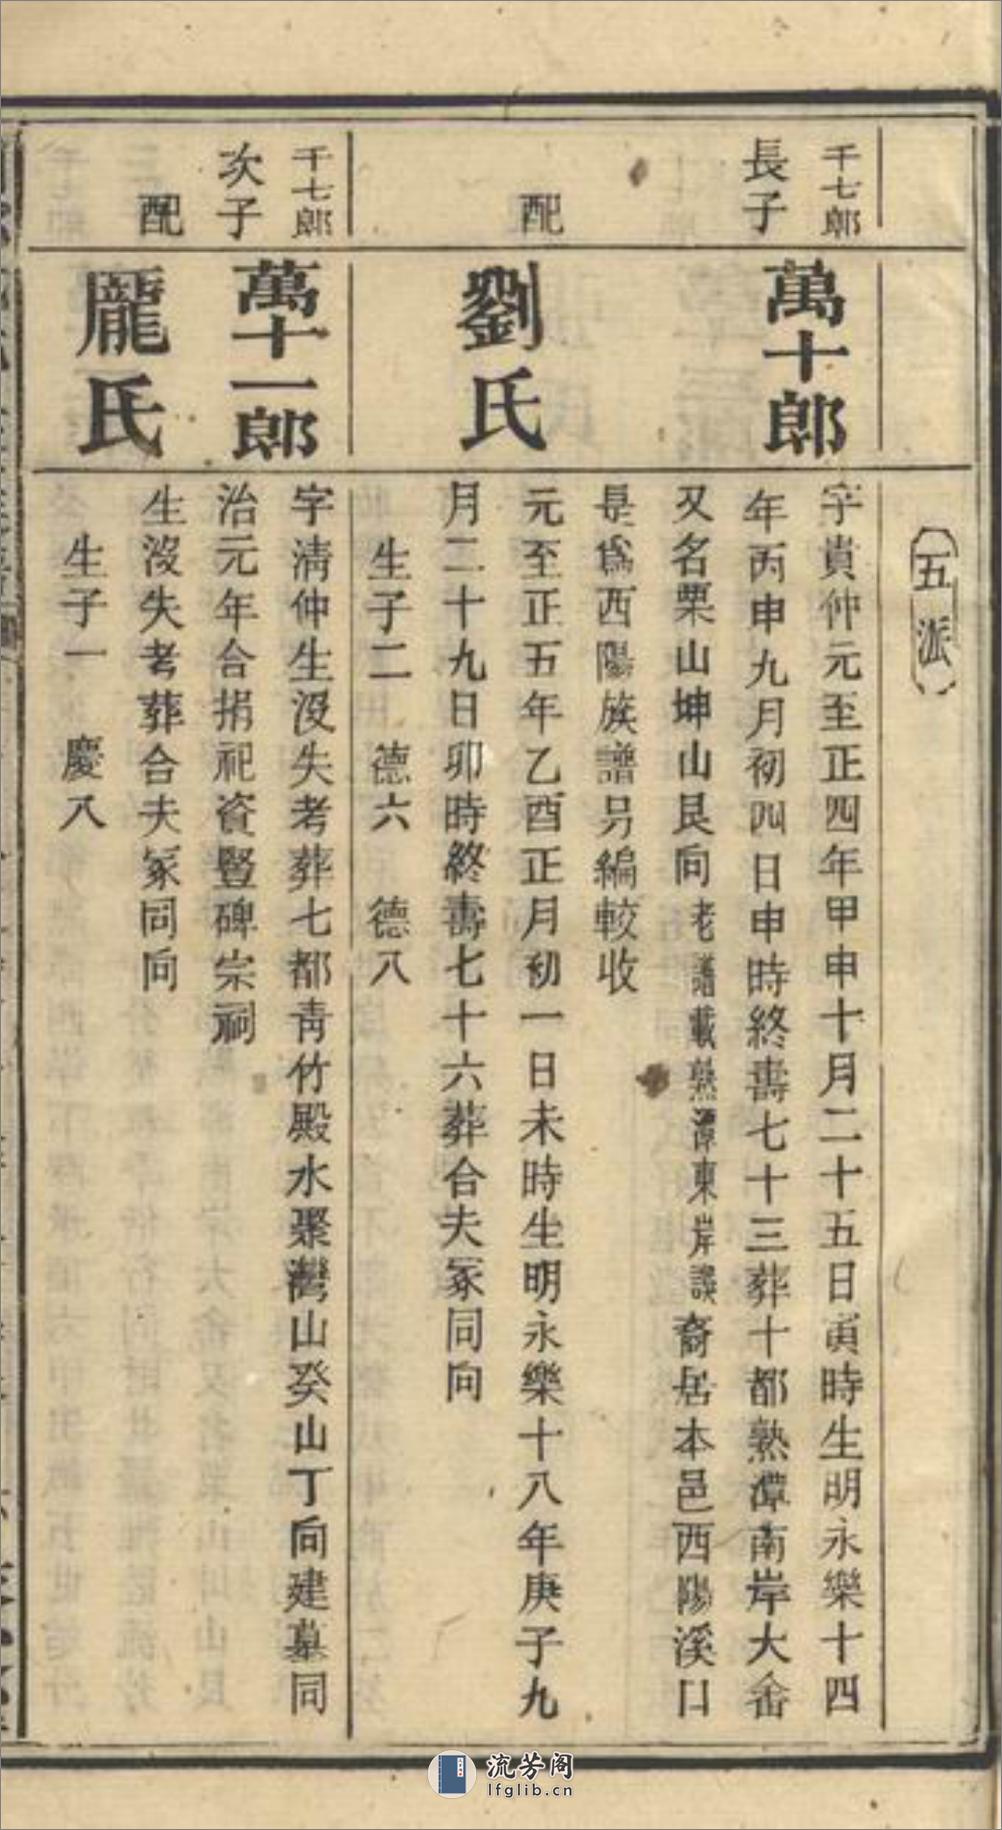 五派
千七郎
長子
萬十郎
字貴仲元至正四年甲申十月二十五日寅時生明永樂十四
年丙申九月初四日申時終壽七十三葬十都熟潭南岸大畬
又名栗山坤山艮向老譜載熟潭東岸誤裔居本邑西陽溪口
是爲西陽族譜另編較收
配
劉氏
元至正五年乙酉正月初一日未時生明永樂十八年庚子九
月二十九日卯時終壽七十六葬合夫冢同向
生子二 德六 德八
千七郎
次子
萬十一郎
字清仲生沒失考葬七都靑竹殿水聚灣山癸山丁向建墓同
治元年合捐祀資豎碑宗祠
配
龐氏
生沒失考葬合夫冢同向
生子一 慶八
流芳阁
lfglib.cn